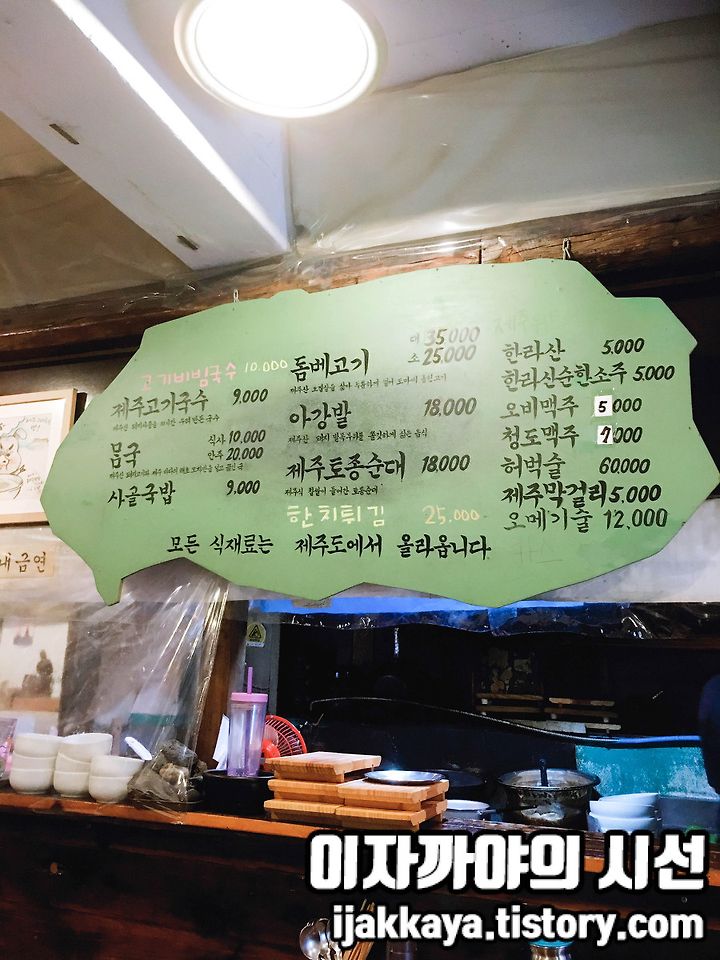 고기비빔국수 10.000
제주고기국수 9,000
몸국 식사 10,000
안주 20,000
사골국밥 9,000
돔베고기 대 35,000
소 25,000
아강발 18,000
제주토종순대 18,000
한치튀김 25,000
한라산 5.000
한라산순한소주 5.000
오비맥주 5,000
청도맥주 7,000
허벅술 60.000
제주막걸리 5.000
오메기술 12,000
모든 식재료는 제주도에서 올라옵니다
내금연
이자까야의 시선
ijakkaya.tistory.com